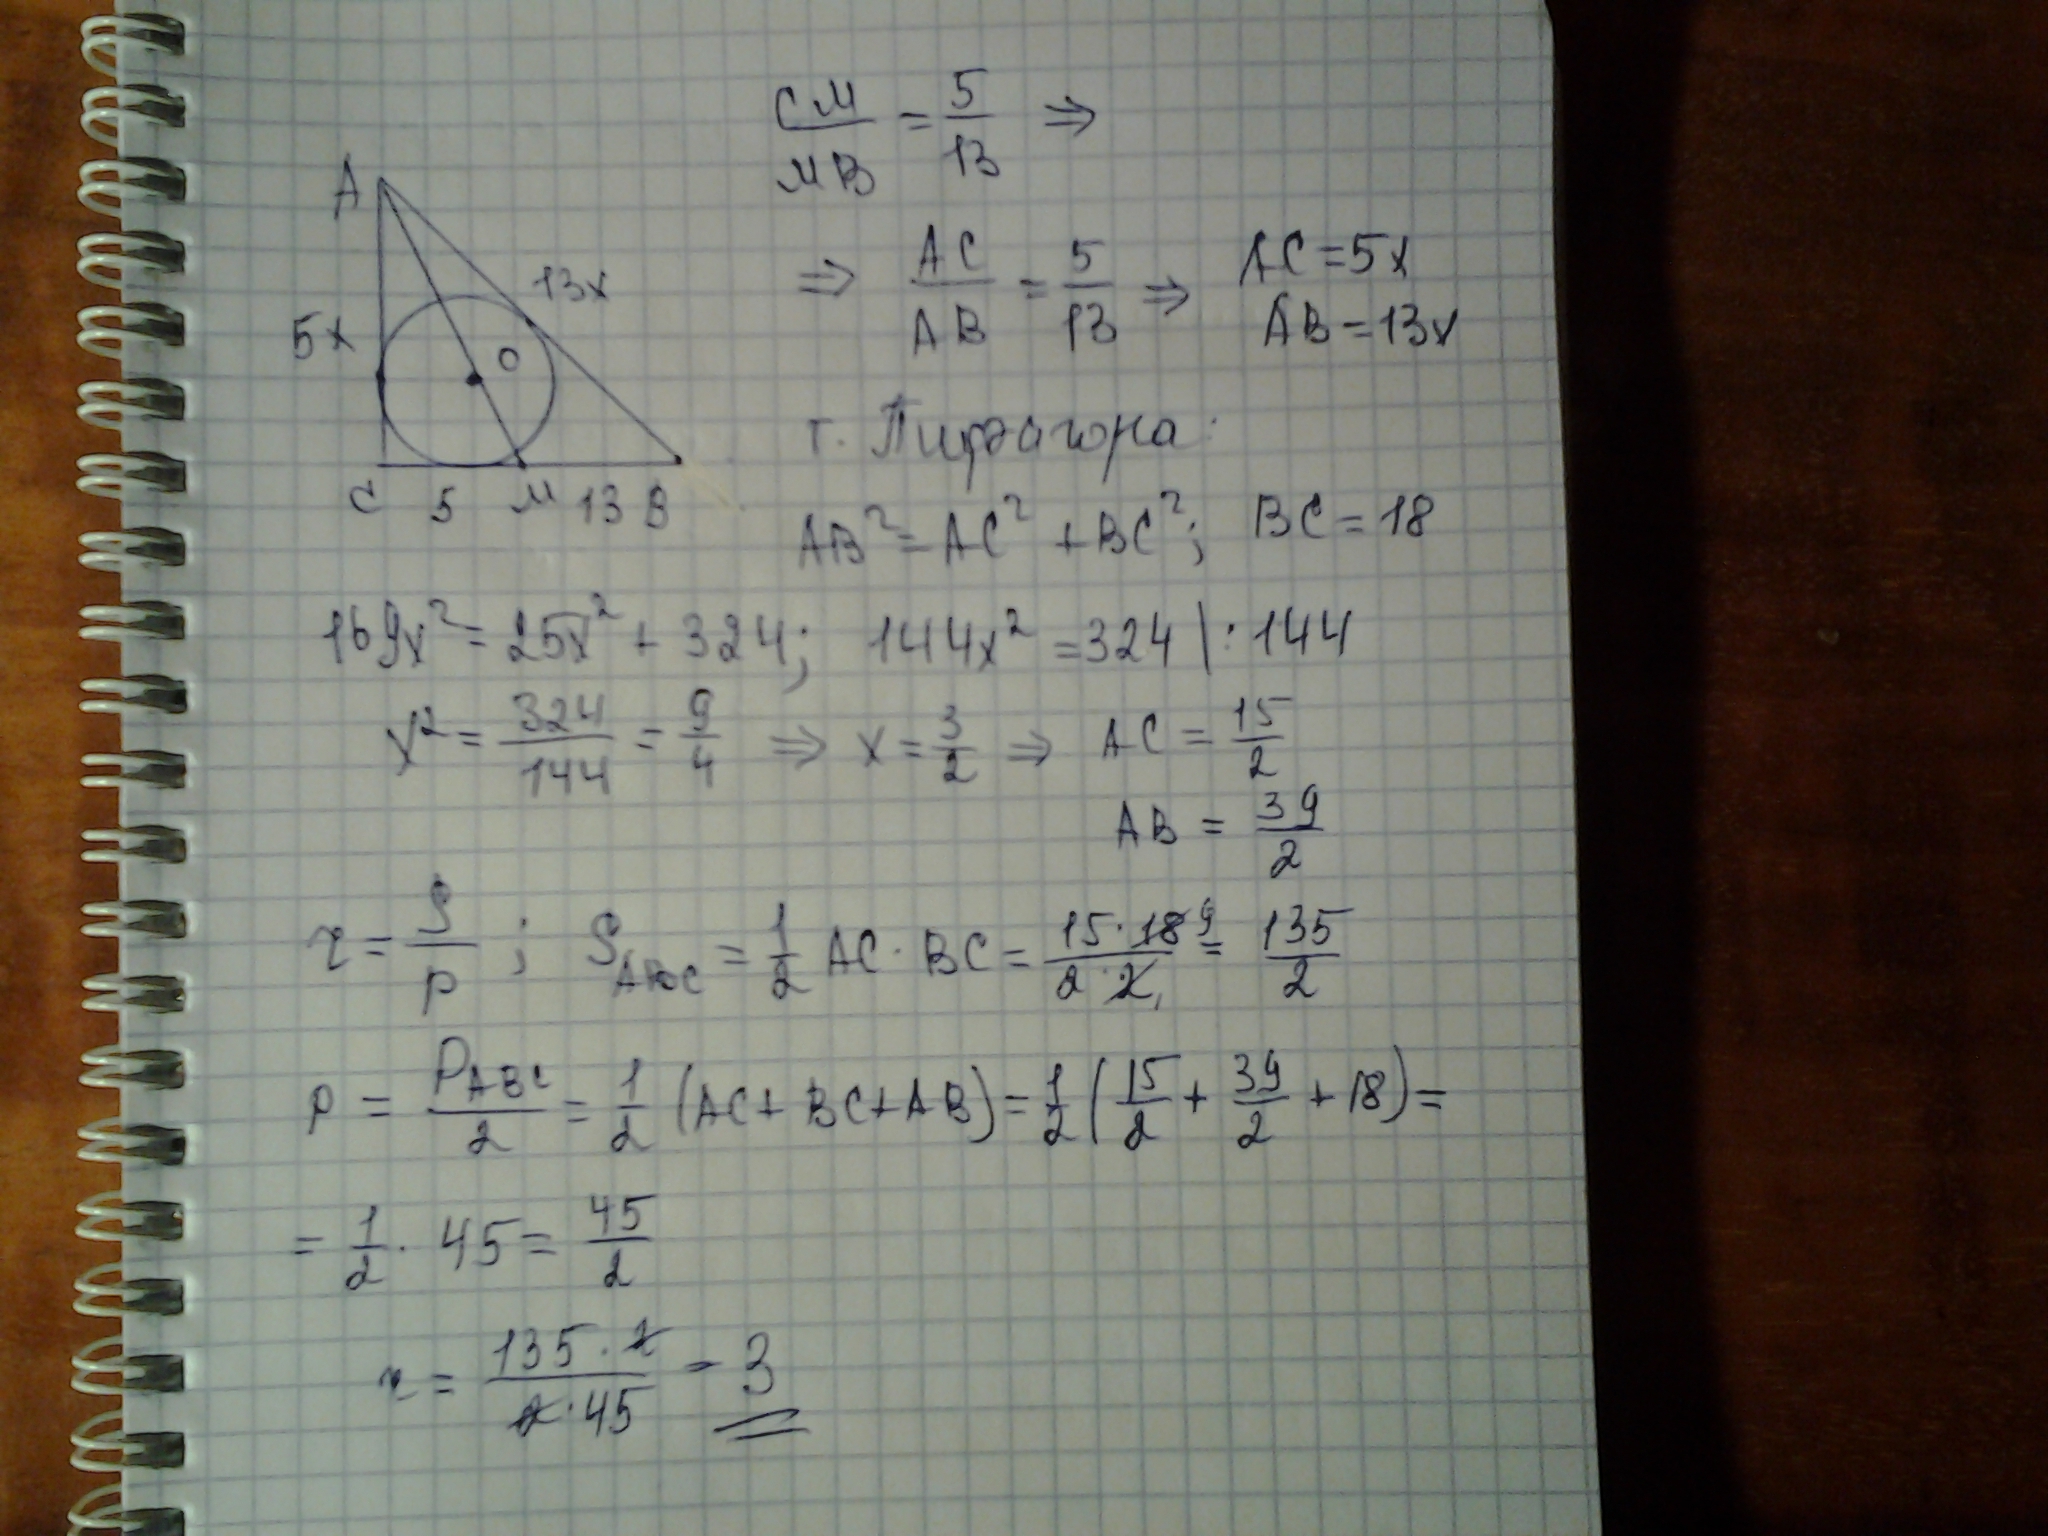 CM/MB = 5/13 ⇒
⇒ AC/AB = 5/13 ⇒ AC = 5x
AB = 13x
A
13x
5x
O
C 5 M 13 B
т. Пифагора:
AB² = AC² + BC²; BC = 18
169x² = 25x² + 324; 144x² = 324 |:144
x² = 324/144 = 9/4 ⇒ x = 3/2 ⇒ AC = 15/2
AB = 39/2
r = S/p ; S ABC = 1/2 AC · BC = 15·18 9/2·2 1 = 135/2
p = P ABC/2 = 1/2 (AC + BC + AB) = 1/2 (15/2 + 39/2 + 18) =
= 1/2 · 45 = 45/2
r = 135·2/2·45 = 3